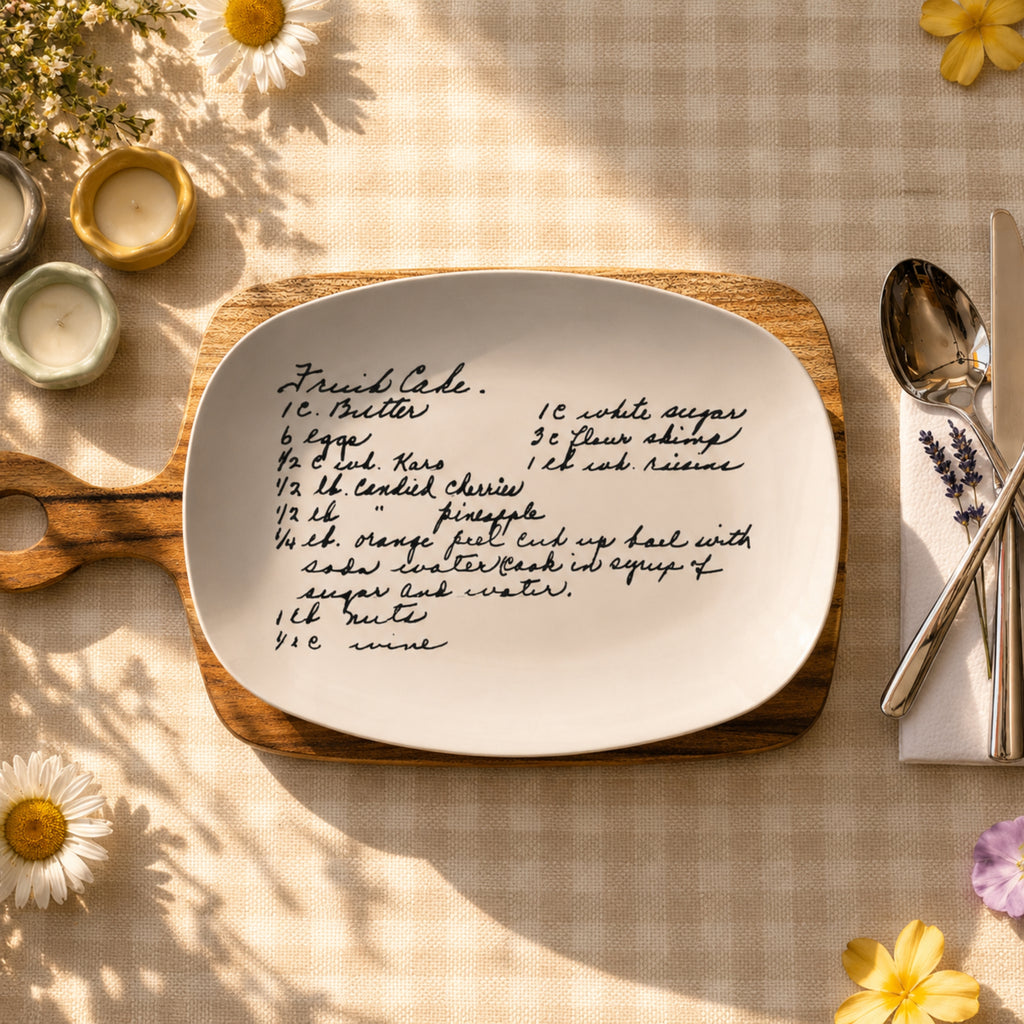 Fruit Cake.
1 C. Butter 1 C white sugar
6 eggs 3 C flour skimp
1/2 C wh. Karo 1 lb wh. raisins
1/2 lb. Candied Cherries
1/2 lb " pineapple
1/4 lb. orange peel cut up boil with
soda water (Cook in syrup of
sugar and water.
1 lb nuts
1/2 C wine